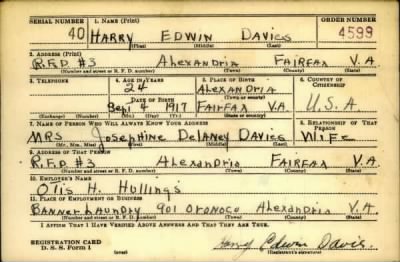 SERIAL NUMBER 1. NAME (Print) ORDER NUMBER
40 HARRY EDWIN DAVIES 4599
(First) (Middle) (Last)
2. ADDRESS (Print)
R.F.D #3 Alexandria FAIRFAX V.A
(Number and street or R. F. D. number) (Town) (County) (State)
3. TELEPHONE 4. AGE IN YEARS 5. PLACE OF BIRTH 6. COUNTRY OF CITIZENSHIP
24 ALEXANDRIA
DATE OF BIRTH (Town or county)
Sept 4 1917 FAIRFAX V.A. U.S.A
(Exchange) (Number) (Mo.) (Day) (Yr.) (State or country)
7. NAME OF PERSON WHO WILL ALWAYS KNOW YOUR ADDRESS 8. RELATIONSHIP OF THAT PERSON
MRS Josephine Delaney Davies WIFE
(Mr., Mrs., Miss) (First) (Middle) (Last)
9. ADDRESS OF THAT PERSON
R.F.D #3 Alexandria FAIRFAX V.A.
(Number and street or R. F. D. number) (Town) (County) (State)
10. EMPLOYER'S NAME
OTIS H. Hullings
11. PLACE OF EMPLOYMENT OR BUSINESS
BANNER LAUNDRY 901 ORONOCO Alexandria V.A.
(Number and street or R. F. D. number) (Town) (County) (State)
I AFFIRM THAT I HAVE VERIFIED ABOVE ANSWERS AND THAT THEY ARE TRUE.
REGISTRATION CARD
D. S. S. Form 1 (over) Harry Edwin Davies
(Registrant's signature)